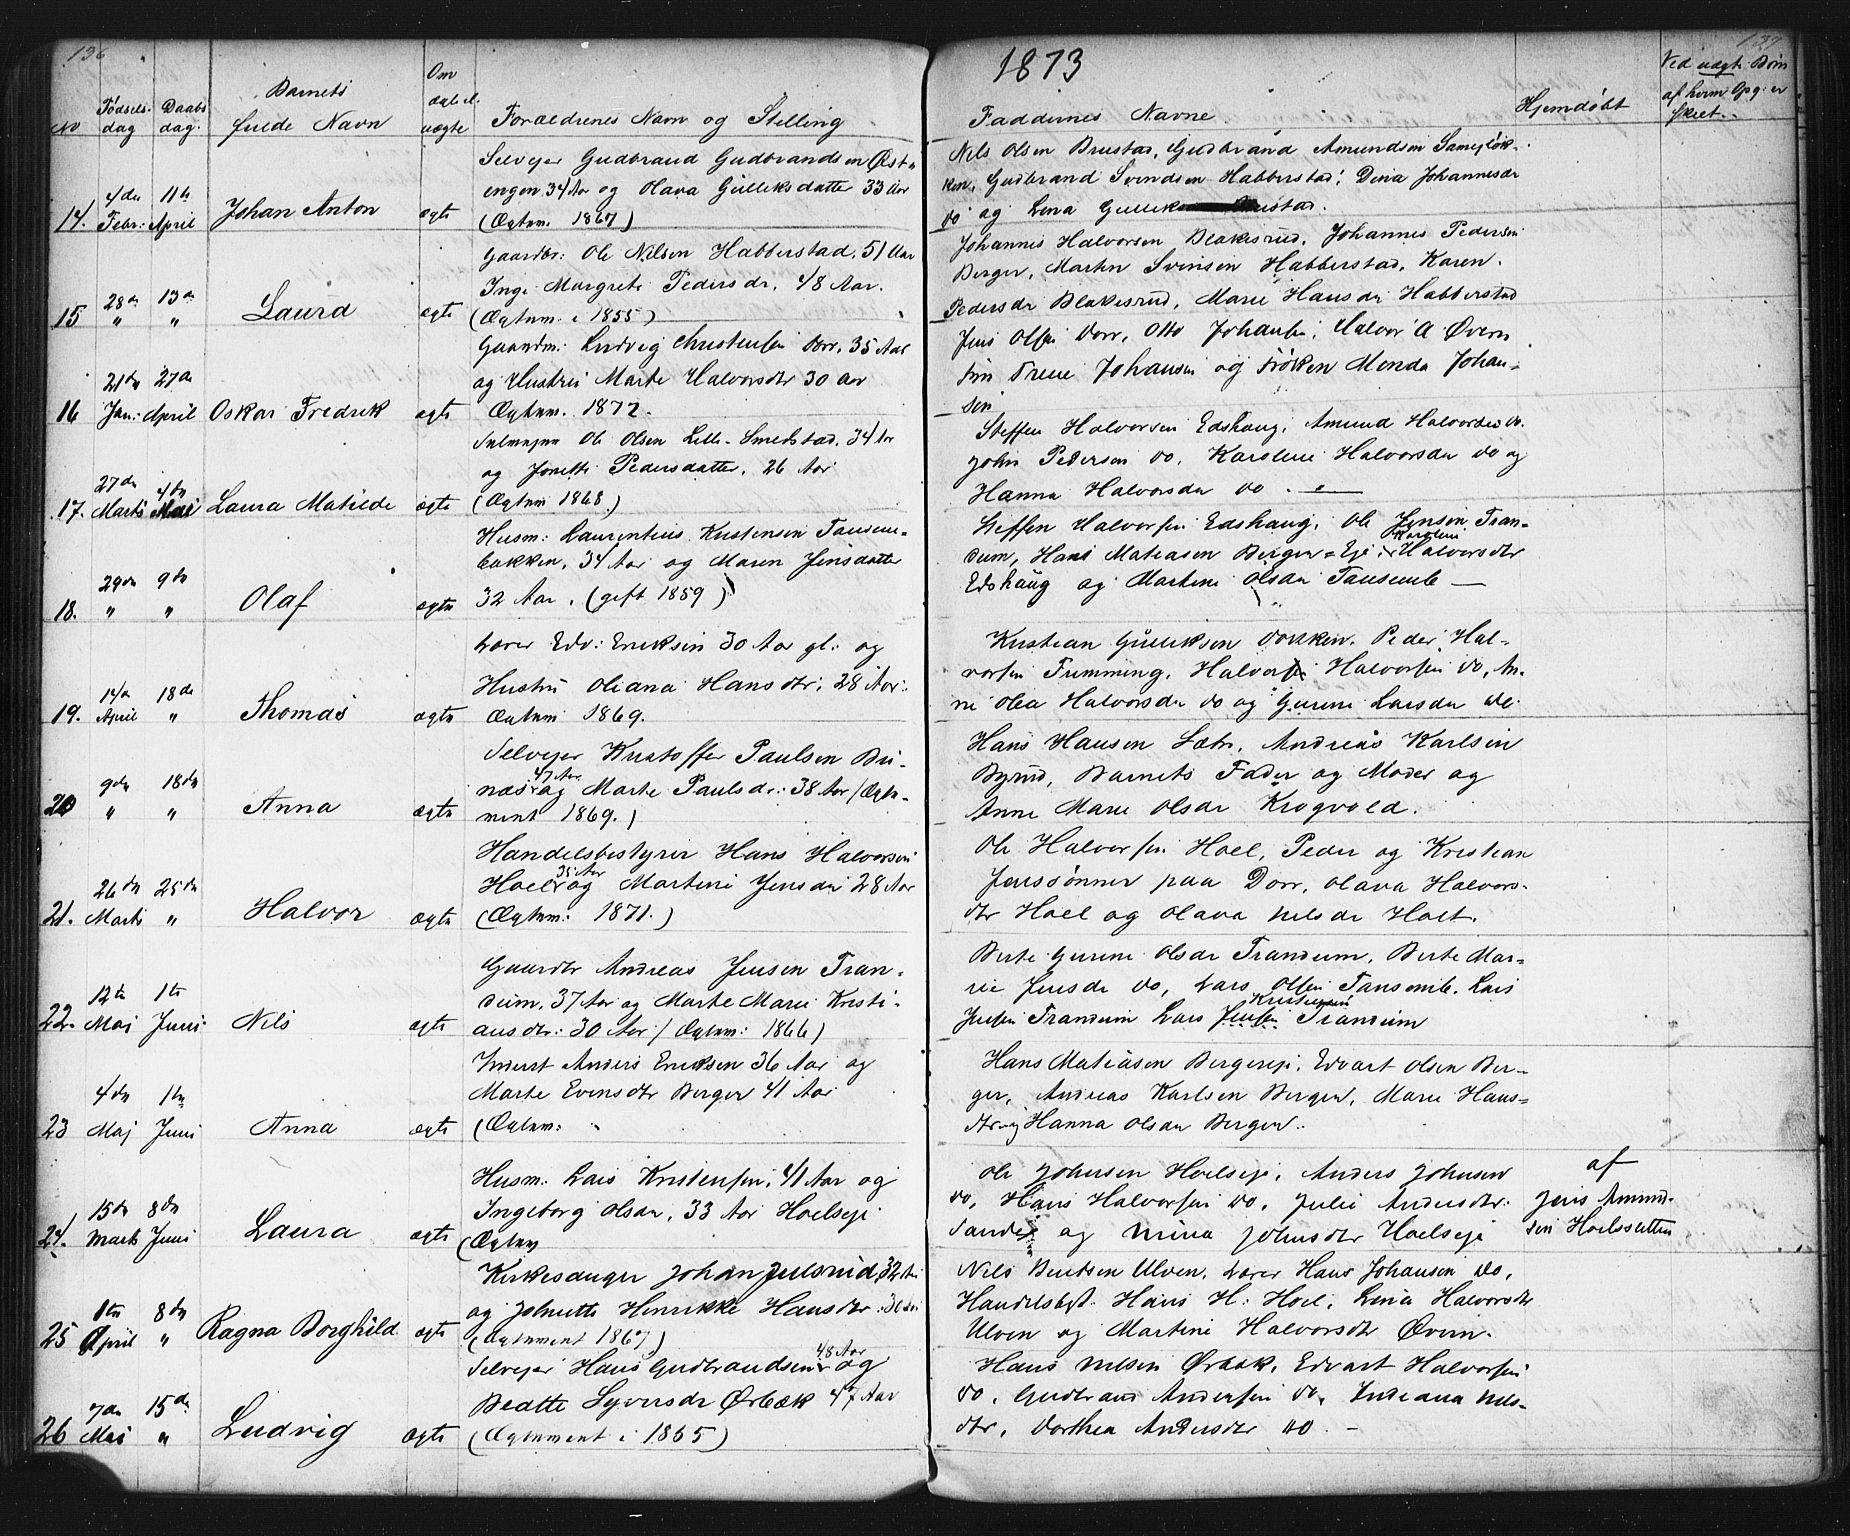 136
No
Fødsels-
dag
Daabs
dag.
Barnets
fulde Navn
Om
ægte el.
uægte
Forældrenes Navn og Stilling
14.
4de
Febr:
11te
April
Johan Anton
ægte
Selveier Gudbrand Gudbrandsen Øst-
engen 34 Aar og Olava Gulleksdatter 33 Aar
(Ægtvm. 1867)
15
28de
"
13de
"
Laura
ægte
Gaardbr: Ole Nilsen Habberstad, 51 Aar
Inge Margrete Pedersdr, 48 Aar.
(Ægtvm. i 1855)
16
21de
Jan:
27de
April
Oskar Fredrik
ægte
Gaardm: Ludvig Christensen Dorr, 35 Aar
og Hustru Marte Halvorsdtr 30 Aar
Ægtvm. 1872.
17.
27de
Marts
4de
Mai
Laura Matilde
ægte
Ole Olsen Lille-Smedstad, 34 Aar
og Jonette Pedersdatter, 26 Aar
(Ægtvm 1868.)
18.
29de
"
9de
"
Olaf
ægte
Husm: Laurentius Kristensen Tanseme-
bakken, 34 Aar og Maren Jensdatter
32 Aar. (gift 1859)
19.
14de
April
18de
"
Thomas
ægte
Lærer Edv: Eriksen 30 Aar gl: og
Hustru Oliana Hansdtr, 28 Aar.
Ægtvm 1869.
20
9de
"
18de
"
Anna
ægte
Selveier Kristoffer Paulsen Bu-
næs 47 Aar og Marte Paulsdr: 38 Aar (Ægte-
ment 1869.)
21.
26de
Marts
25de
"
Halvor
ægte
Handelsbestyrer Hans Halvorsen
Hoel 35 Aar og Martine Jensdr 28 Aar
(Ægtvm: 1871.)
22.
12te
Mai
1te
Juni
Nils
ægte
Gaardbr Andreas Jensen Tran-
dum, 37 Aar og Marte Marie Kristi-
ansdtr: 30 Aar (Ægtvm: 1866)
23
4de
Maj
1te
Juni
Anna
ægte
Inderst Anders Eriksen 36 Aar og
Marte Evensdtr Berger 41 Aar
(Ægtvm:
24.
15de
Marts
8de
Juni
Laura
ægte
Husm: Lars Kristensen, 41 Aar og
Ingeborg Olsdr, 33 Aar Hoelseje
(Ægtvm
25
1te
April
8de
"
Ragna Borghild
ægte
Kirkesanger Johan Julsrud, 32 Aar
og Johnette Henrikke Hansdtr: 30 Aar
(Ægtement 1867)
26
7de
Mai
15de
"
Ludvig
ægte
Selveier Hans Gudbrandsen 48 Aar og
Beatte Syversdr Ørbæk 47 Aar
(Ægtement i 1855)
1873
137
Faddernes Navne.
Hjemdøbt
Ved uægte Børn
af hvem Opg: er
skeet.
Nils Olsen Brustad, Gudbrand Amundsen Sameiløk-
ken, Gudbrand Svendsen Habberstad, Dina Johannesdr
do og Lina Gulleks
Johannis Halvorsen Blakesrud, Johannes Pedersen
Berger, Marten Svensen Habberstad, Karen
Pedersdr Blakesrud, Marie Hansdr Habberstad
Jens Olsen Dorr, Otto Johansen, Halvor A Øveren
Trine Johansen og Frøken Menda Johan-
sen
Steffen Halvorsen Edshaug, Amund Halvorsen do.
John Pedersen do, Karoline Halvorsdr do og
Hanna Halvorsdr do.
Steffen Halvorsen Edshaug, Ole Jensen Tran-
dum, Hans Matiasen Berger-Eje, Karoline Halvorsdtr
Edshaug og Martine Olsdr Tansemb
Kristian Gulliksen Dokken, Peder Hal-
vorsen Tumming, Halvorsen Halvorsen do, An-
ne Olea Halvorsdr do og Gurine Larsdr
Hans Hansen Sætr, Andreas Karlsen
Byrud, Barnets Fader og Moder og
Anne Marie Olsdr Krogvold.
Ole Halvorsen Hoel, Peder og Kristian
Jenssønner paa Dorr, Olava Halvors-
dtr Hoel og Olava Nilsdr Holt.
Berte Gurine Olsdr Trandum, Berte Ma-
rie Jensdr do, Lars Olsen Tansemb. Lars
Jensen Trandum Lars Jensen Kristensen Trandum
Hans Matiasen Bergereje, Edvart Olsen Ber-
ger, Andreas Karlsen Berger, Marie Hans-
dtr og Hanna Olsdr Berger.
Ole Johnsen Hoelseje, Anders Johnsen
do, Hans Halvorsen do, Julie Andersdtr:
Sandes og Mina Johnsdtr Hoelseje
af
Jens Amund-
sen Hoelssetten
Nils Bentsen Ulven, Lærer Hans Johansen do,
Handelsbst: Hans H: Hoel, Lina Halvorsdtr
Ulven og Martine Halvorsdtr Øvern.
Hans Nilsen Ørbæk, Edvart Halvorsen
do, Gudbrand Andersen do, Indiana Nils-
dtr, Dorthea Andersdtr do.